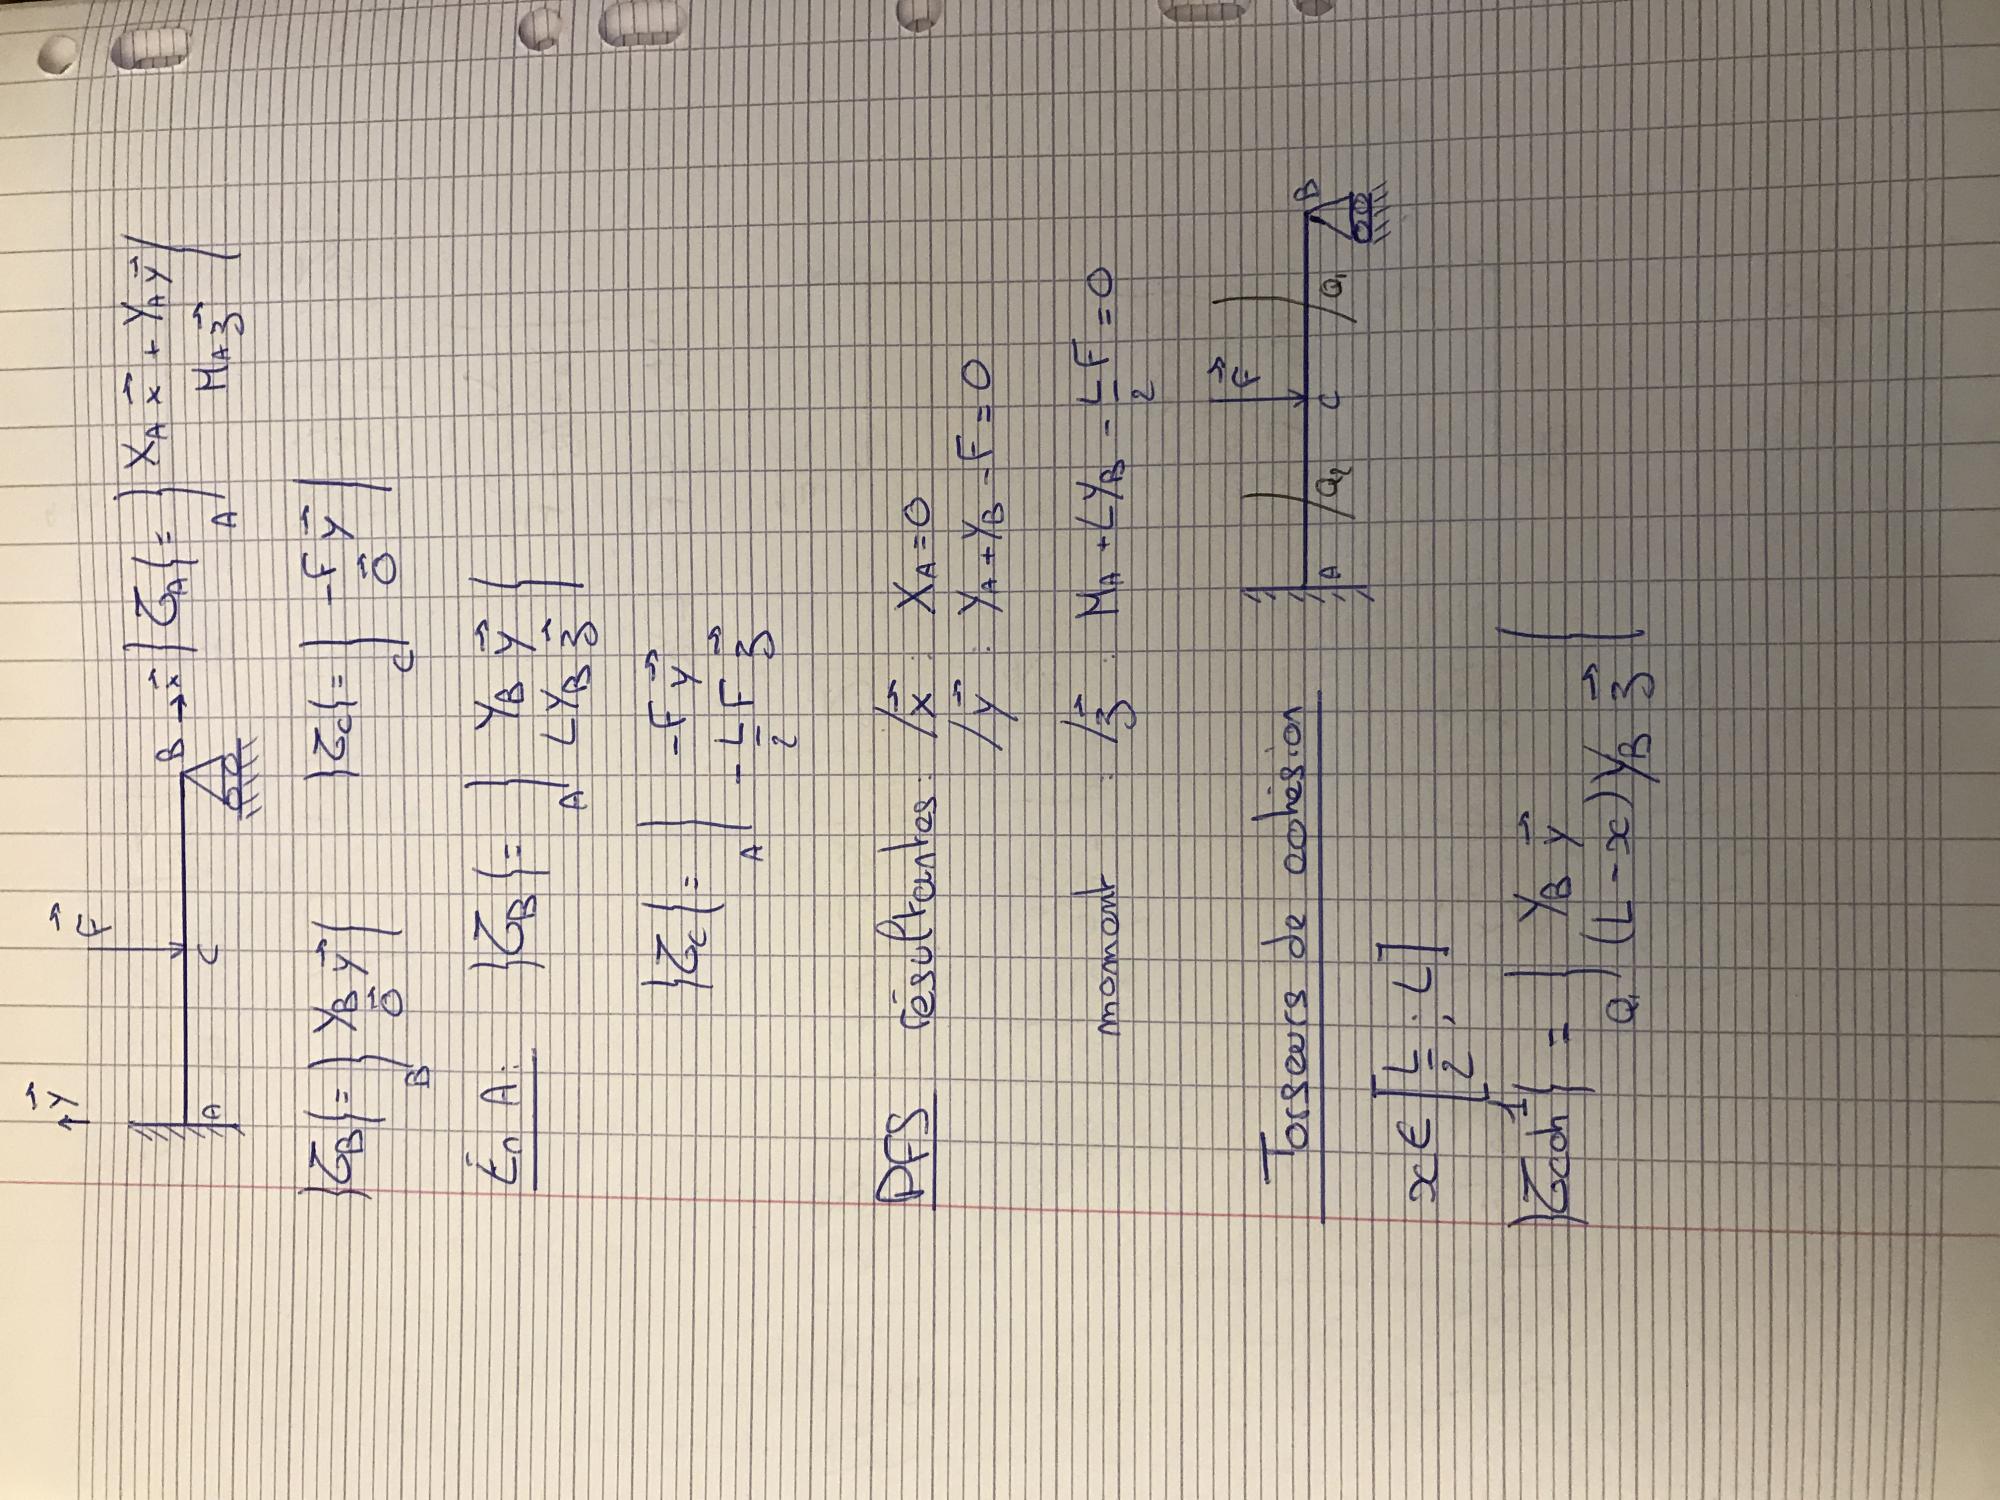 y⃗
F⃗
A C B → x⃗
{τ_A} = _A{ X_A x⃗ + Y_A y⃗
M_A z⃗ }
{τ_B} = _B{ Y_B y⃗
0⃗ }
{τ_C} = _C{ -F y⃗
0⃗ }
En A:
{τ_B} = _A{ Y_B y⃗
L Y_B z⃗ }
{τ_C} = _A{ -F y⃗
-L/2 F z⃗
PFS résultantes: /x⃗ : X_A = 0
/y⃗ : Y_A + Y_B - F = 0
moment : /z⃗ : M_A + L Y_B - L/2 F = 0
Torseurs de cohésion
F⃗
A Q₂ C Q₁ B
x ∈ [L/2 ; L]
{τ_coh¹} = _Q₁{ Y_B y⃗
(L - x) Y_B z⃗ }